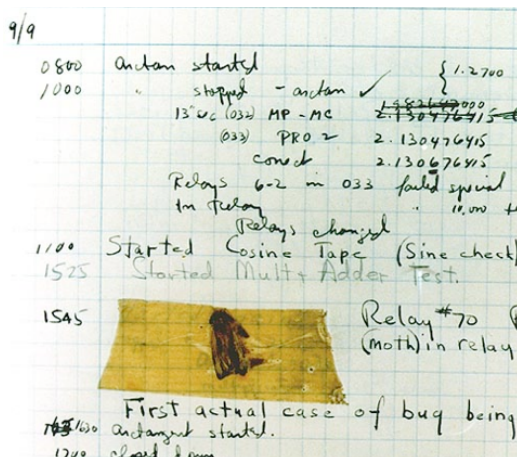 9/9
0800 arctan started
1.2700
1000 " stopped - arctan ✓
13"uc (032) MP-MC 2.130476415
(033) PRO 2 2.130476415
conect 2.130676415
Relays 6-2 in 033 failed special
In Relay " 10,000
Relays changed
1100 Started Cosine Tape (Sine check)
1525 Started Mult+ Adder Test.
1545 Relay #70
(moth) in relay
First actual case of bug being
1630 arctangent started.
closed down